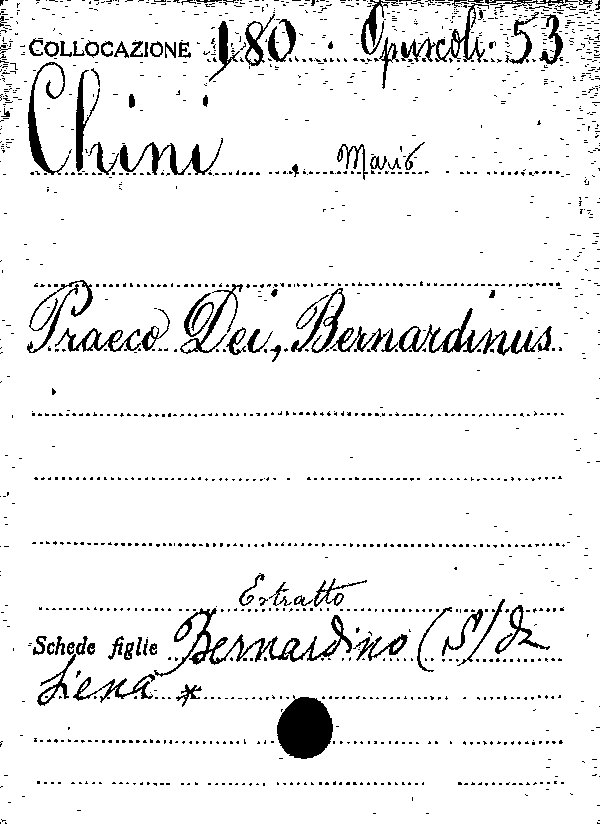 COLLOCAZIONE 180 . Opuscoli. 53
Chini , Mario
Praeco Dei, Bernardinus
Estratto
Schede figlie Bernardino (S) da
Siena *